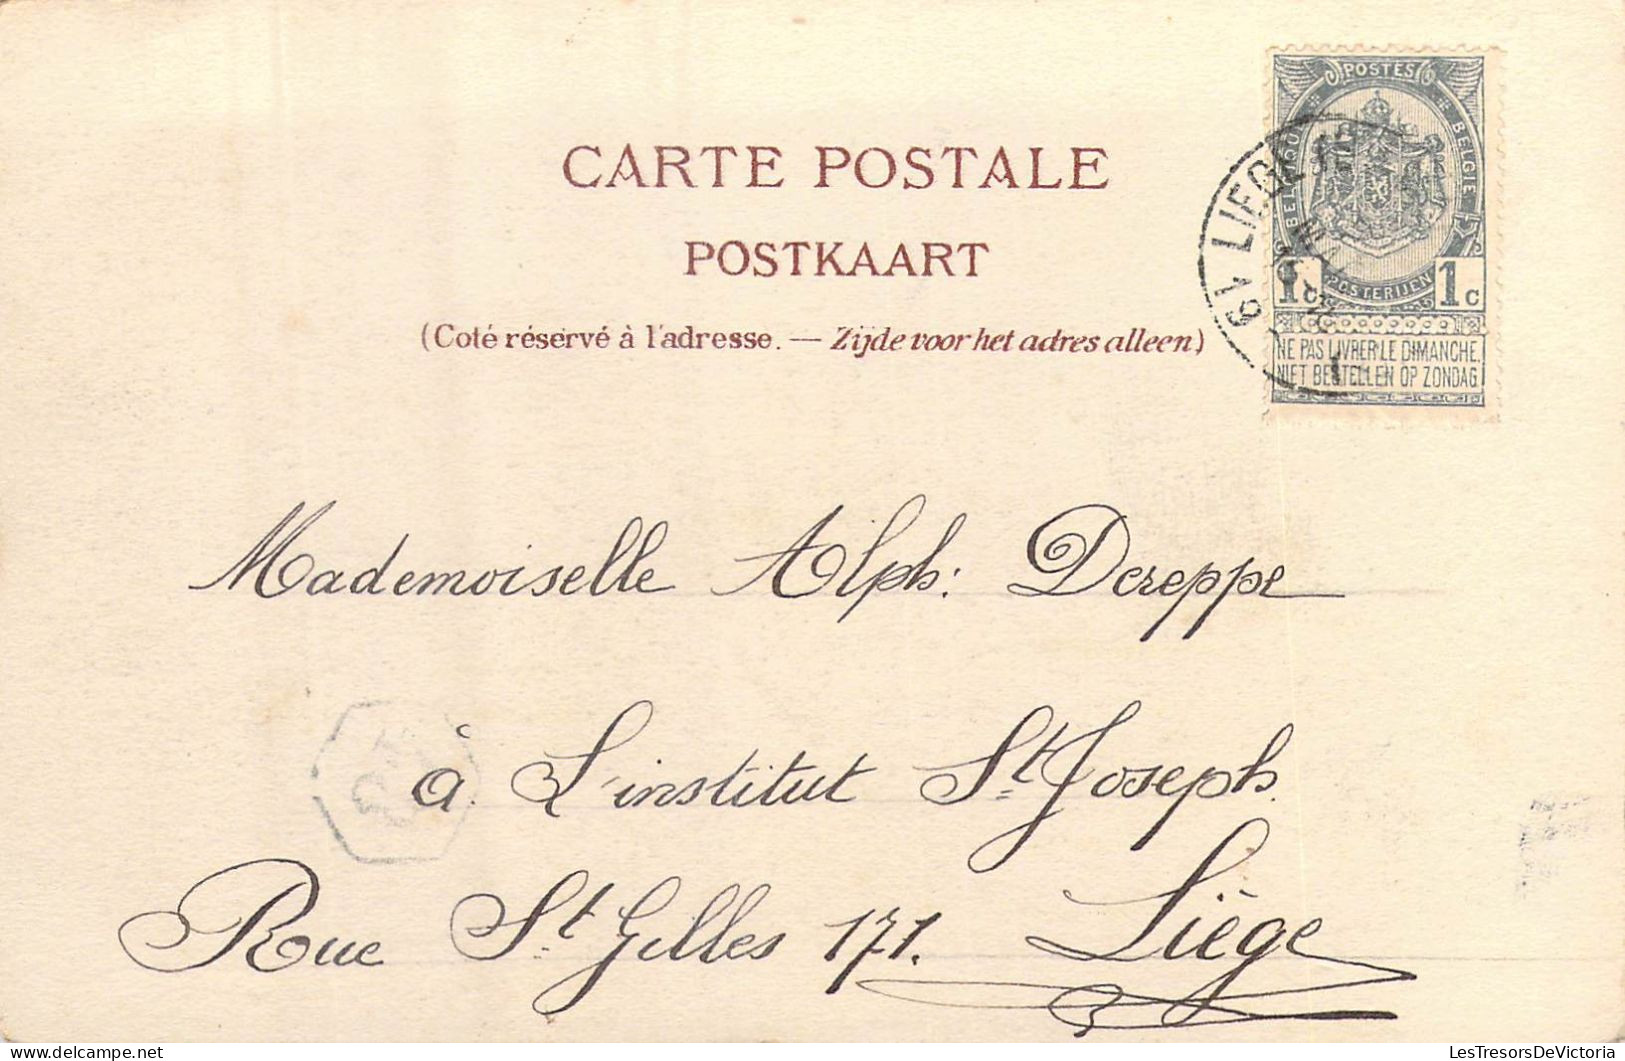 POSTES
BELGIQUE BELGIE
CARTE POSTALE
LIEGE
POSTKAART
1c POSTERIJEN 1c
(Coté réservé à l'adresse. — Zijde voor het adres alleen)
NE PAS LIVRER LE DIMANCHE.
NIET BESTELLEN OP ZONDAG
Mademoiselle Alph: Dereppe
à L'institut St Joseph.
Rue St Gilles 171. Liége
LesTresorsDeVictoria